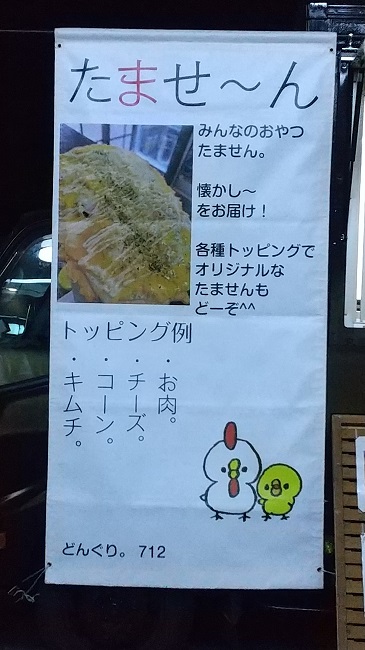 たませ～ん
みんなのおやつ
たません。
懐かし～
をお届け！
各種トッピングで
オリジナルな
たませんも
どーぞ^^
トッピング例
・お肉。
・チーズ。
・コーン。
・キムチ。
どんぐり。 712